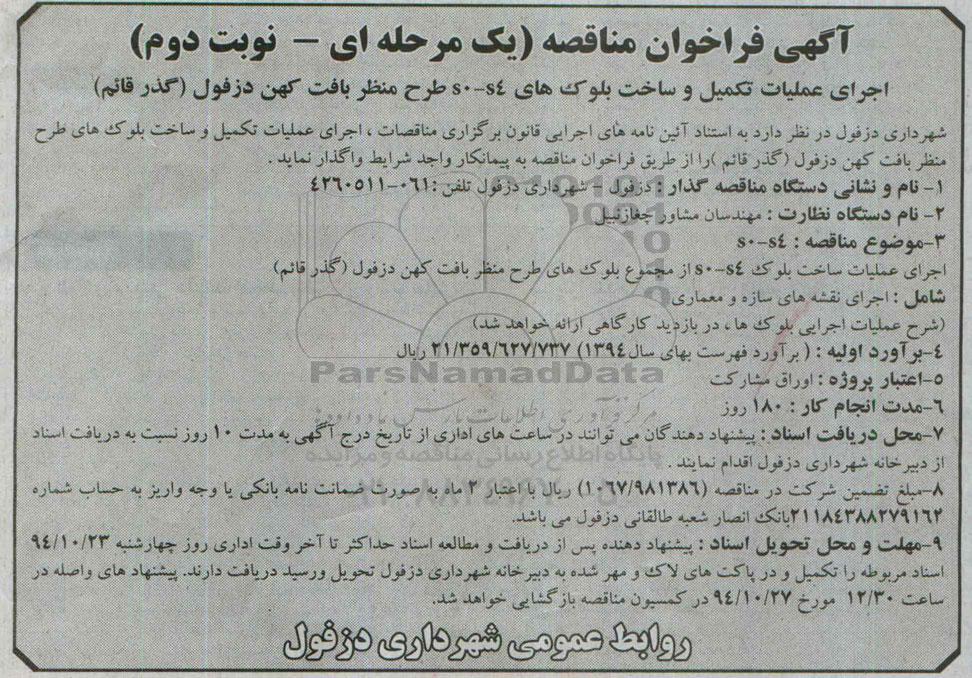 آگهی فراخوان مناقصه (یک مرحله ای – نوبت دوم)
اجرای عملیات تکمیل و ساخت بلوک های s٠-s٤ طرح منظر بافت کهن دزفول (گذر قائم)
شهرداری دزفول در نظر دارد به استناد آئین نامه های اجرایی قانون برگزاری مناقصات ، اجرای عملیات تکمیل و ساخت بلوک های طرح
منظر بافت کهن دزفول (گذر قائم )را از طریق فراخوان مناقصه به پیمانکار واجد شرایط واگذار نماید .
١- نام و نشانی دستگاه مناقصه گذار : دزفول – شهرداری دزفول تلفن :٠٦١-٤٢٦٠٥١١
٢- نام دستگاه نظارت : مهندسان مشاور چغازنبیل
٣-موضوع مناقصه : s٠-s٤
اجرای عملیات ساخت بلوک s٠-s٤ از مجموع بلوک های طرح منظر بافت کهن دزفول (گذر قائم)
شامل : اجرای نقشه های سازه و معماری
(شرح عملیات اجرایی بلوک ها ، در بازدید کارگاهی ارائه خواهد شد)
٤-برآورد اولیه : ( برآورد فهرست بهای سال١٣٩٤) ٢١/٣٥٩/٦٢٧/٧٣٧ ریال
ParsNamadData
٥-اعتبار پروژه : اوراق مشارکت
٦-مدت انجام کار : ١٨٠ روز
مرکز فرآوری اطلاعات پارس نماد داده ها
٧-محل دریافت اسناد : پیشنهاد دهندگان می توانند در ساعت های اداری از تاریخ درج آگهی به مدت ١٠ روز نسبت به دریافت اسناد
از دبیرخانه شهرداری دزفول اقدام نمایند .
پایگاه اطلاع رسانی مناقصه و مزایده
٨-مبلغ تضمین شرکت در مناقصه (١٠٦٧/٩٨١٣٨٦) ریال با اعتبار ٣ماه بصورت ضمانت نامه بانکی یا وجه واریز به حساب شماره
٢١١٨٤٣٨٨٢٧٩١٦٢بانک انصار شعبه طالقانی دزفول می باشد.
٩-مهلت و محل تحویل اسناد : پیشنهاد دهنده پس از دریافت و مطالعه اسناد حداکثر تا آخر وقت اداری روز چهارشنبه ٩٤/١٠/٢٣
اسناد مربوطه را تکمیل و در پاکت های لاک و مهر شده به دبیرخانه شهرداری دزفول تحویل ورسید دریافت دارند. پیشنهاد های واصله در
ساعت ١٢/٣٠ مورخ ٩٤/١٠/٢٧ در کمسیون مناقصه بازگشایی خواهد شد.
روابط عمومی شهرداری دزفول